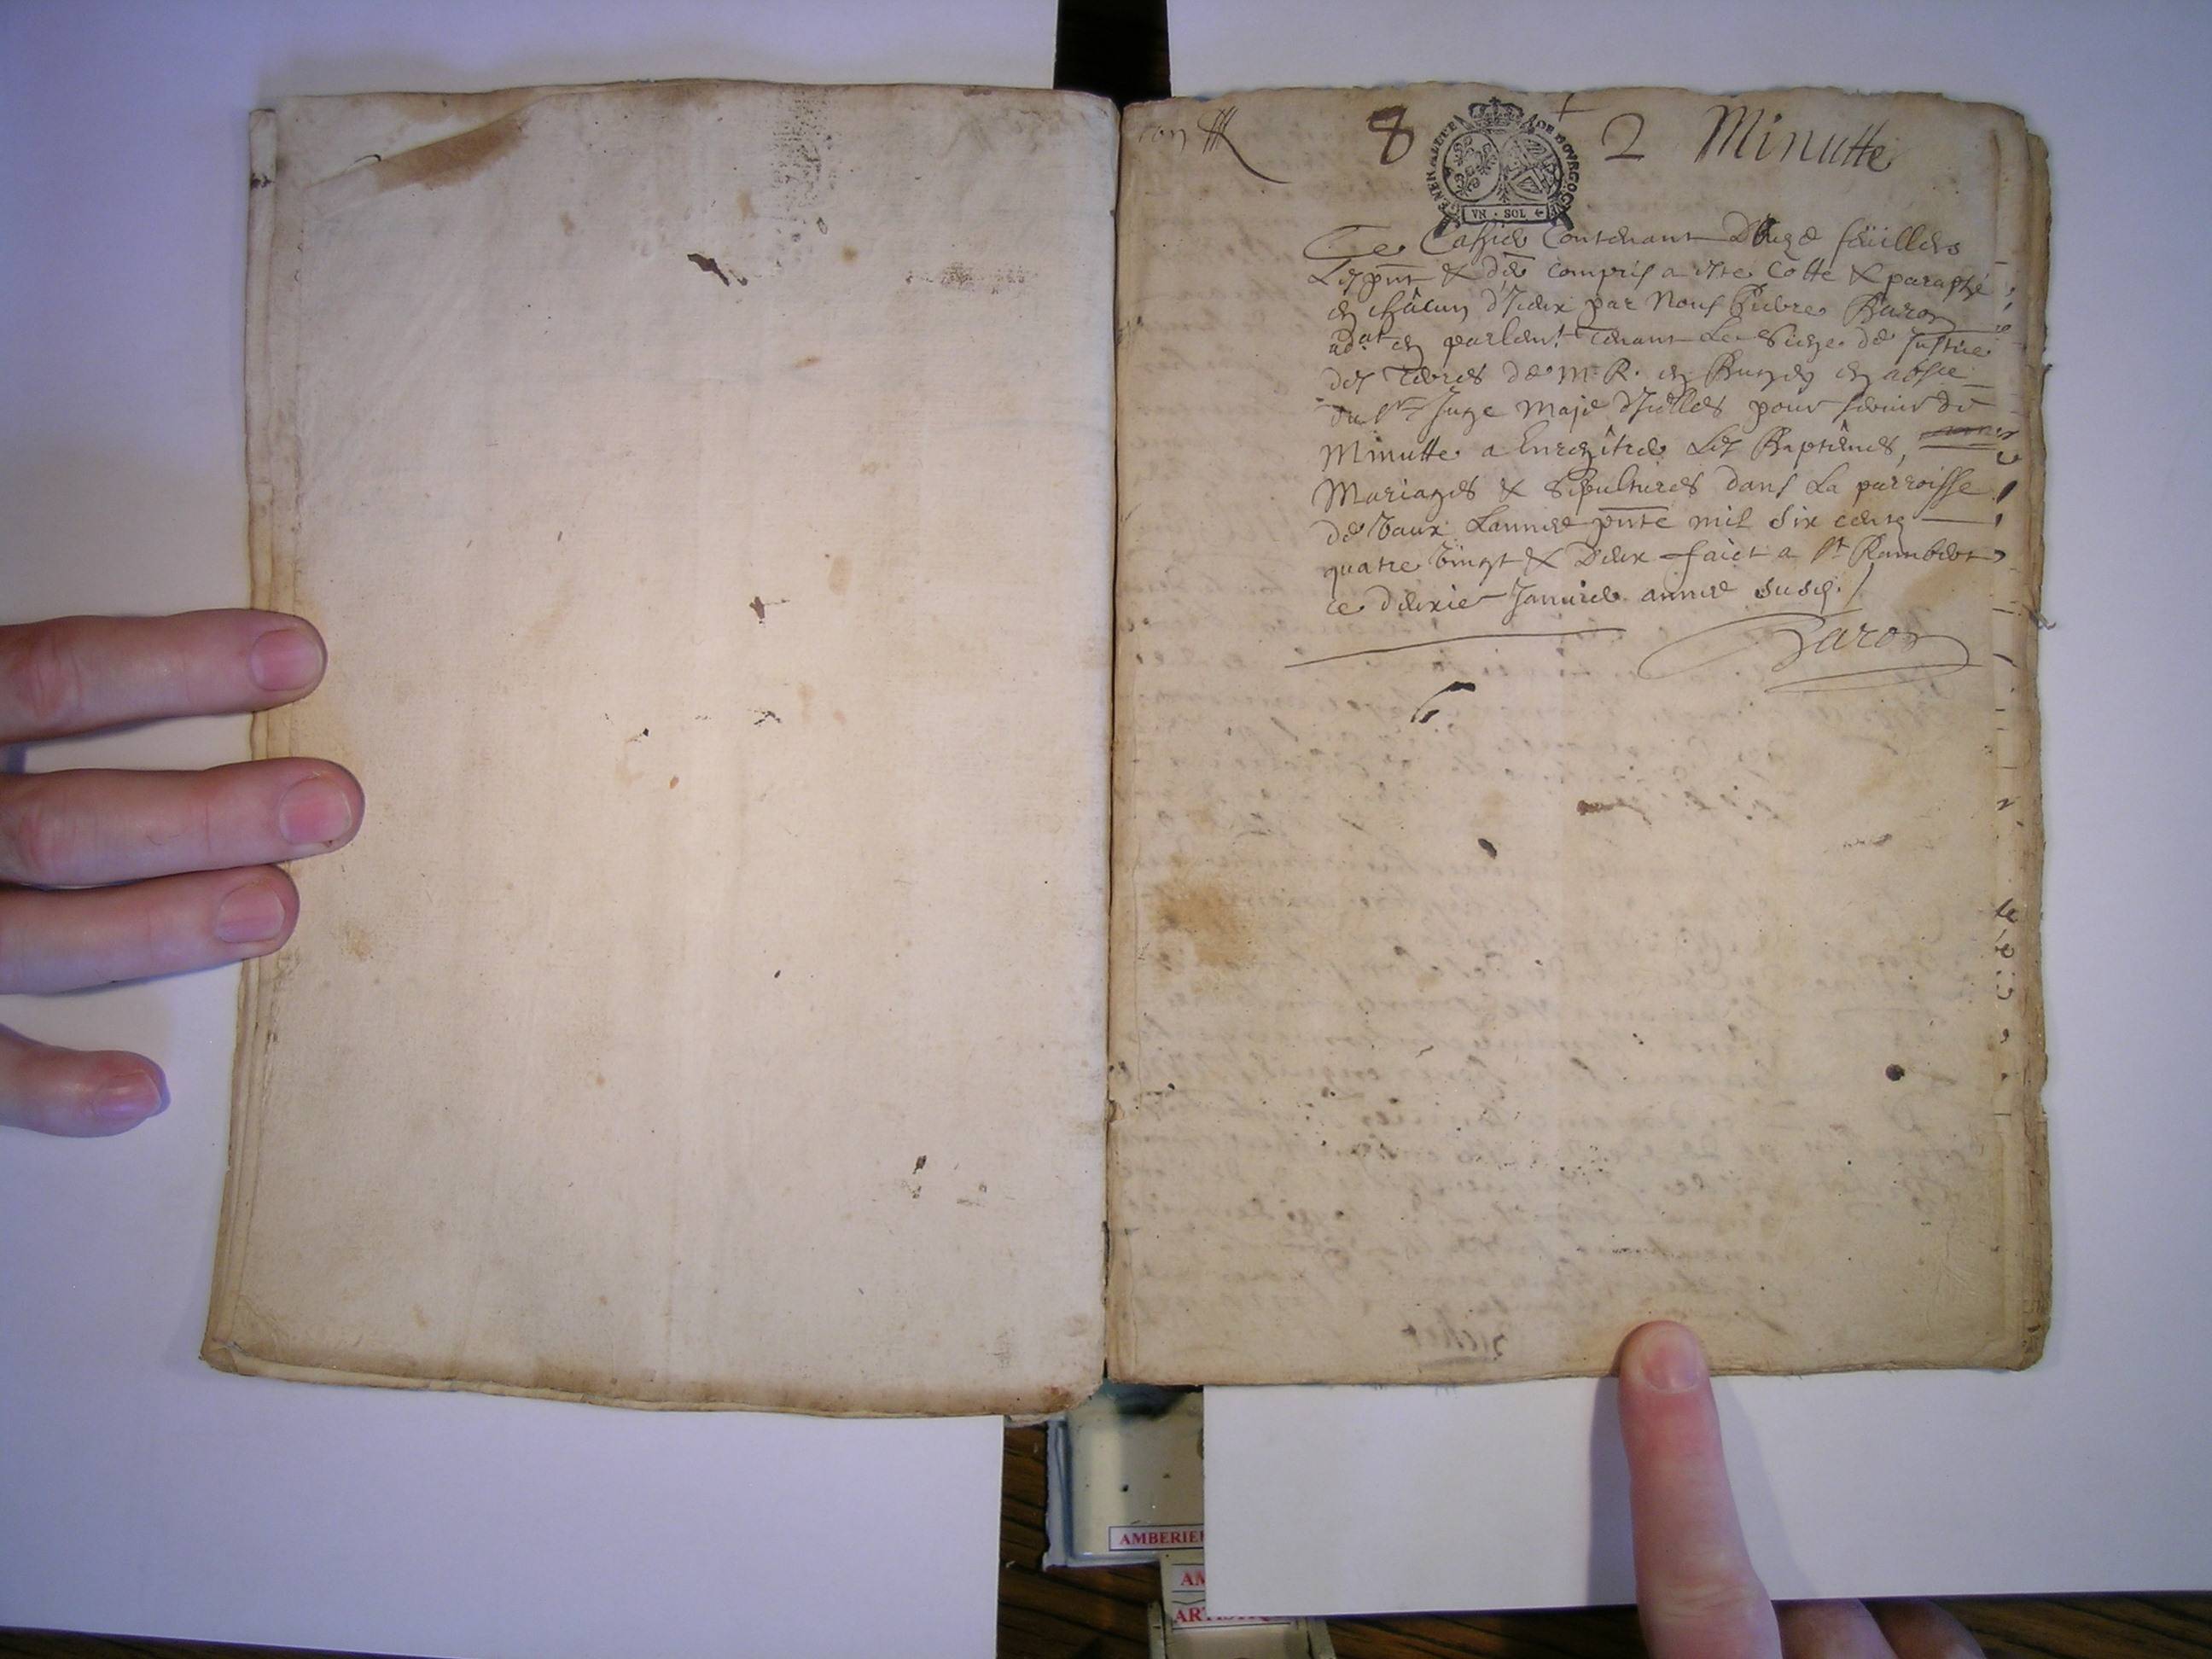 8 2 Minutte
GENERALITE DE BOVRGOGNE
VN · SOL
Ce Cahier Contenant feüillets
Les pnt & der compris a este Cotte & paraphé
en châcun d'Iceux par Nous Pierre Baron
adat en parlemt. tenant Le Siege de Justice
des terres de Mr R. en Bugey en absce
du Sr Juge Maje d'Icelles pour servir de
Minutte a Enregîtrer Les Baptêmes,
Mariages & Sepultures dans La parroisse
de Vaux Lannee pnte mil six cents
quatre vingt & Deux faict a St Rambert
ce deuxie Janvier annee susd. /
Baron
AMBERIE
AM